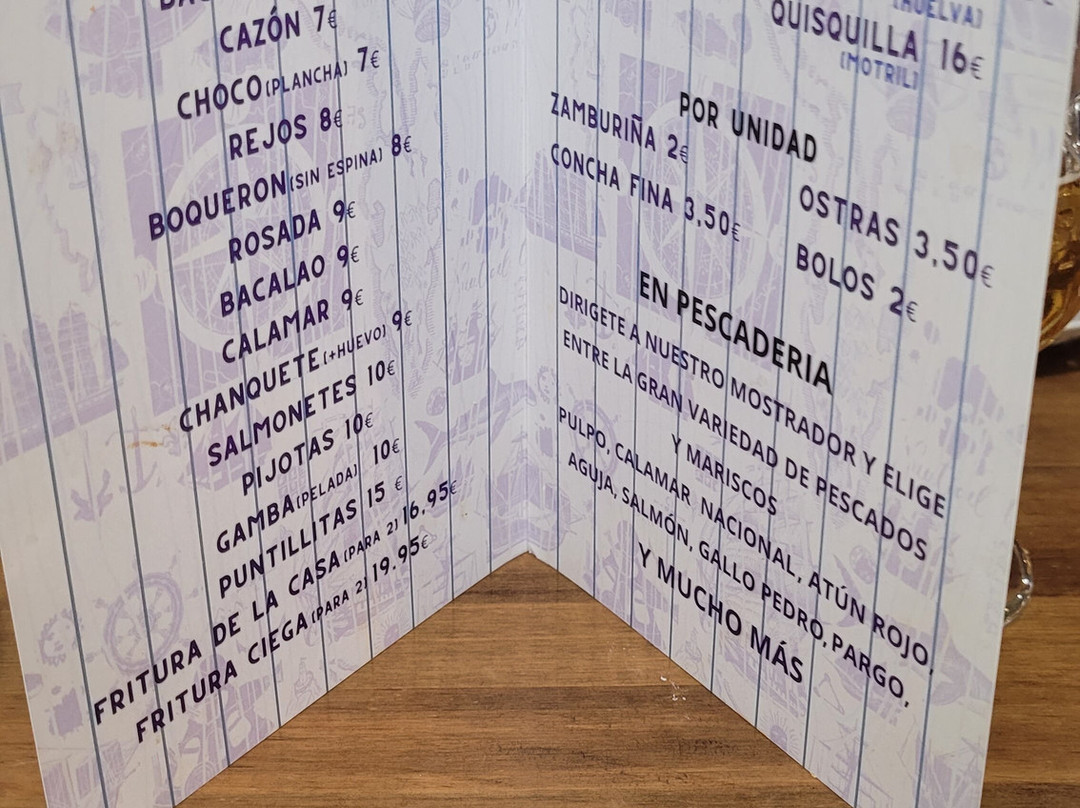 CAZÓN 7€
CHOCO (PLANCHA) 7€
REJOS 8€
BOQUERON (SIN ESPINA) 8€
ROSADA 9€
BACALAO 9€
CALAMAR 9€
CHANQUETE (+HUEVO) 9€
SALMONETES 10€
PIJOTAS 10€
GAMBA (PELADA) 10€
PUNTILLITAS 15 €
FRITURA DE LA CASA (PARA 2) 16.95€
FRITURA CIEGA (PARA 2) 19.95€
(HUELVA)
QUISQUILLA 16€
(MOTRIL)
POR UNIDAD
ZAMBURIÑA 2€
OSTRAS 3,50€
CONCHA FINA 3,50€
BOLOS 2€
EN PESCADERIA
DIRIGETE A NUESTRO MOSTRADOR Y ELIGE
ENTRE LA GRAN VARIEDAD DE PESCADOS
Y MARISCOS
PULPO, CALAMAR NACIONAL, ATÚN ROJO,
AGUJA, SALMÓN, GALLO PEDRO, PARGO,
Y MUCHO MÁS